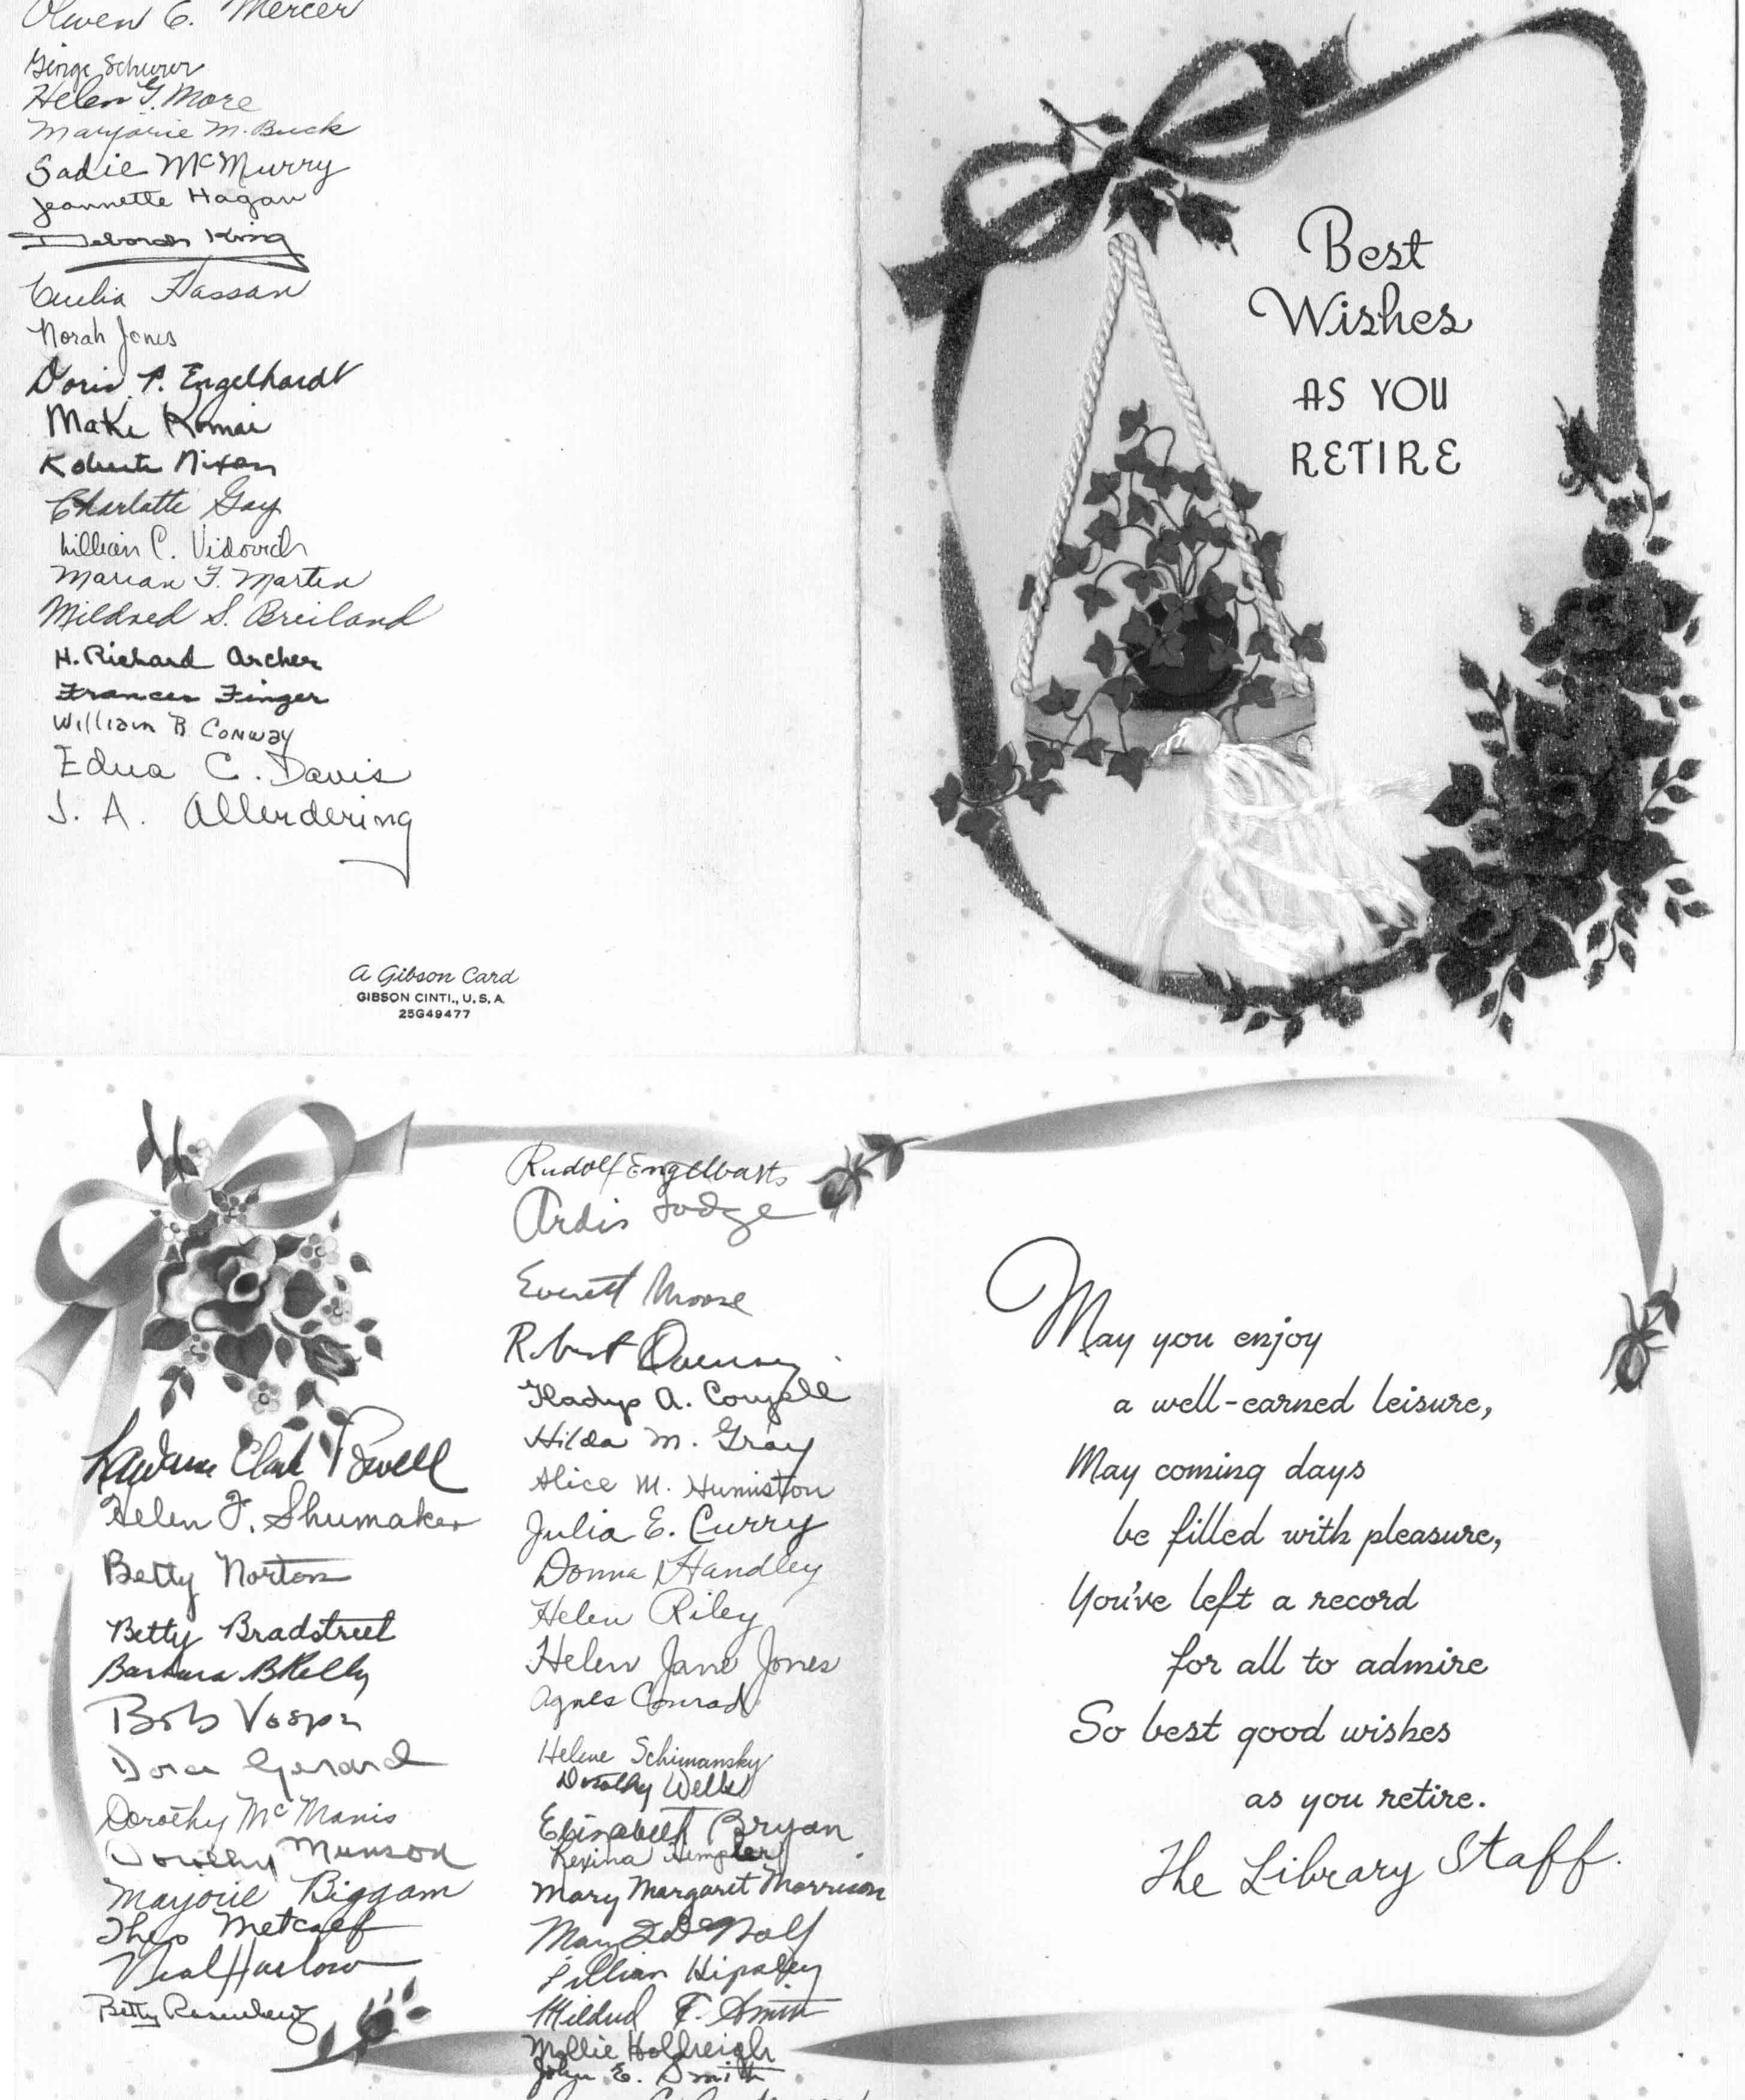 Olwen E. Mercer
George Scheerer
Helen G. More
Marjorie M. Buck
Sadie McMurry
Jeannette Hagan
Deborah King
Cecilia Hassan
Norah Jones
Doris P. Engelhardt
Maki Komai
Roberta Nixon
Charlotte Gay
Lillian C. Vidovich
Marian F. Martin
Mildred S. Breiland
H. Richard Archer
Frances Finger
William B Conway
Edna C. Davis
J. A. Allerdering
A Gibson Card
GIBSON CINTI., U.S.A.
25G49477
Best
Wishes
AS YOU
RETIRE
Lawrence Clark Powell
Helen F. Shumaker
Betty Norton
Betty Bradstreet
Barbara B Kelly
Bob Vosper
Dora Gerard
Dorothy McManis
Dorothy Munson
Marjorie Biggam
Theo Metcalf
Neal Harlow
Betty Rosenberg
Rudolf Engelbarts
Ardis Lodge
Everett Moore
Robert Quinsey
Gladys A. Coryell
Hilda M. Gray
Alice M. Humiston
Julia E. Curry
Donna Handley
Helen Riley
Helen Jane Jones
Agnes Conrad
Helene Schimansky
Dorothy Wells
Elizabeth Bryan
Rexina Hempler
Mary Margaret Morrison
Mary DeWolf
Lillian Hipsley
Mildred F. Smith
Mollie Hollreigh
John E. Smith
May you enjoy
a well-earned leisure,
May coming days
be filled with pleasure,
You've left a record
for all to admire
So best good wishes
as you retire.
The Library Staff.